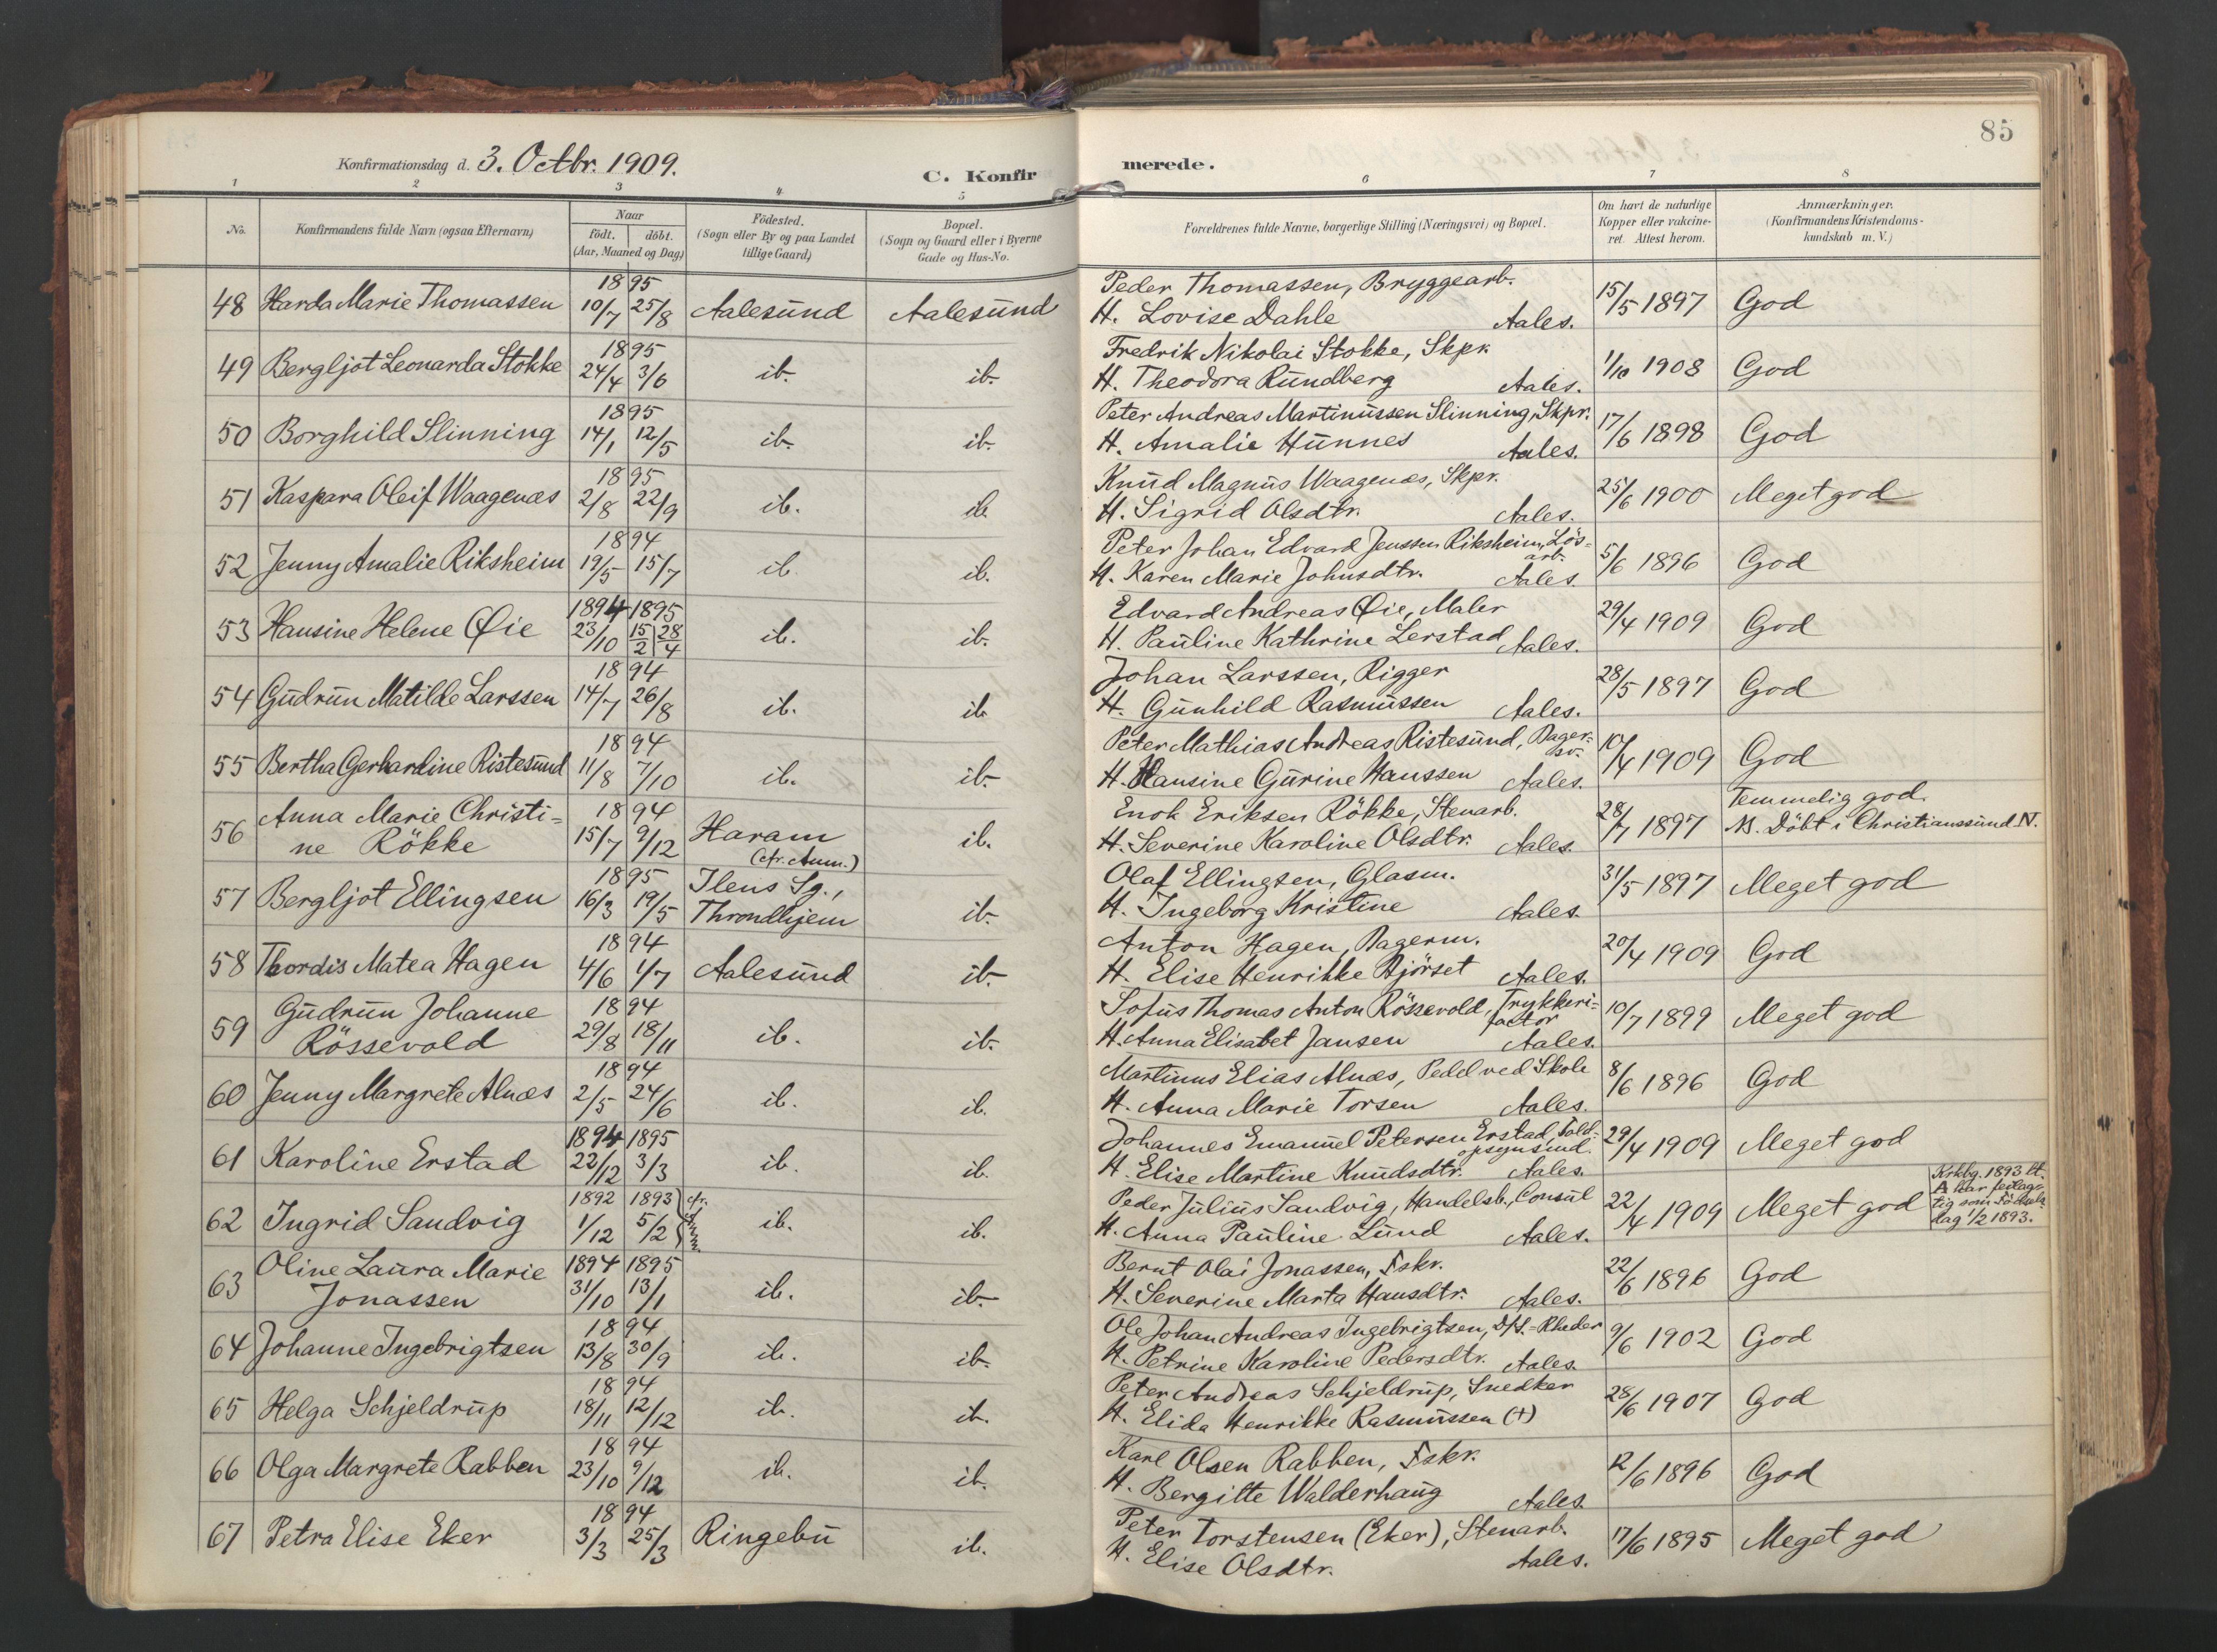 85
Konfirmationsdag d. 3. Octbr. 1909.
C. Konfirmerede.
1 2 3 4 5 6 7 8
No.
Konfirmandens fulde Navn (ogsaa Efternavn)
Naar
født. døbt.
(Aar, Maaned og Dag)
Födested.
(Sogn eller By og paa Landet
tillige Gaard)
Bopæl.
(Sogn og Gaard eller i Byerne
Gade og Hus-No.
Forældrenes fulde Navne, borgerlige Stilling (Næringsvei) og Bopæl.
Om havt de naturlige
Kopper eller vakcine-
ret. Attest herom.
Anmærkninger.
(Konfirmandens Kristendoms-
kundskab m. V.)
1895 Peder Thomassen, Bryggearb.
48 Harda Marie Thomassen 10/7 25/8 Aalesund Aalesund H. Lovise Dahle Aales. 15/5 1897 God
1895 Fredrik Nikolai Stokke, Skpr.
49 Bergljot Leonarda Stokke 24/4 3/6 ib. ib. H. Theodora Rundberg Aales. 1/10 1908 God
1895 Peter Andreas Martinussen Slinning, Skpr.
50 Borghild Slinning 14/1 12/5 ib. ib. H. Amalie Hunnes Aales. 17/6 1898 God
1895 Knud Magnus Waagenæs, Skpr.
51 Kaspara Oleif Waagenæs 2/8 22/9 ib. ib. H. Sigrid Olsdtr. Aales. 25/6 1900 Meget god
1894 Peter Johan Edvard Jenssen Riksheim, Lös-
arb.
52 Jenny Amalie Riksheim 19/5 15/7 ib. ib. H. Karen Marie Johnsdtr. Aales. 5/6 1896 God
1894 1895 Edvard Andreas Øie, Maler
53 Hansine Helene Øie 23/10 15/2 28/4 ib. ib. H. Pauline Kathrine Lerstad Aales. 29/4 1909 God
1894 Johan Larssen, Rigger
54 Gudrun Matilde Larssen 14/7 26/8 ib. ib. H. Gunhild Rasmussen Aales. 28/5 1897 God
1894 Peter Mathias Andreas Ristesund, Bager-
sv.
55 Bertha Gerhardine Ristesund 11/8 7/10 ib. ib. H. Hansine Gurine Hanssen Aales. 10/4 1909 God
Anna Marie Christi- 1894 Enok Eriksen Rökke, Stenarb. Temmelig god.
56 ne Rökke 15/7 9/12 Haram (cfr. Anm.) ib. H. Severine Karoline Olsdtr. Aales. 28/7 1897 NB. Döbt i Christianssund N.
1895 Ilens Sg., Olaf Ellingsen, Glasm.
57 Bergljot Ellingsen 16/3 19/5 Throndhjem ib. H. Ingeborg Kristine Aales. 31/5 1897 Meget god
1894 Anton Hagen, Bagerm.
58 Thordis Matea Hagen 4/6 1/7 Aalesund ib. H. Elise Henrikke Bjørset Aales. 20/4 1909 God
Gudrun Johanne 1894 Sofus Thomas Anton Rössevold, Trykkeri-
factor
59 Rössevold 29/8 18/11 ib. ib. H. Anna Elisabet Jansen Aales. 10/7 1899 Meget god
1894 Martinus Elias Alnæs, Pedel ved Skole
60 Jenny Margrete Alnæs 2/5 24/6 ib. ib. H. Anna Marie Torsen Aales. 8/6 1896 God
1894 1895 Johannes Emanuel Petersen Erstad, Told-
opsynsmd.
61 Karoline Erstad 22/12 3/3 ib. ib. H. Elise Martine Knudsdtr. Aales. 29/4 1909 Meget god
1892 1893 cfr. Anm. Peder Julius Sandvig, Handelsb., Consul
62 Ingrid Sandvig 1/12 5/2 ib. ib. H. Anna Pauline Lund Aales. 22/4 1909 Meget god
Krkbg. 1893 Lt.
A har feilag-
tig som Födsels-
dag 1/2 1893.
Oline Laura Marie 1894 1895 Bernt Olai Jonassen, Fskr.
63 Jonassen 31/10 13/1 ib. ib. H. Severine Marta Hansdtr. Aales. 22/6 1896 God
1894 Ole Johan Andreas Ingebrigtsen, D/S.-Rheder
64 Johanne Ingebrigtsen 13/8 30/9 ib. ib. H. Petrine Karoline Pedersdtr. Aales. 9/6 1902 God
1894 Peter Andreas Schjeldrup, Snedker
65 Helga Schjeldrup 18/11 12/12 ib. ib. H. Elida Henrikke Rasmussen (+) 28/6 1907 God
1894 Karl Olsen Rabben, Fskr.
66 Olga Margrete Rabben 23/10 9/12 ib. ib. H. Bergitte Walderhaug Aales. 12/6 1896 God
1894 Peter Torstensen (Eker), Stenarb.
67 Petra Elise Eker 3/3 25/3 Ringebu ib. H. Elise Olsdtr. Aales. 17/6 1895 Meget god